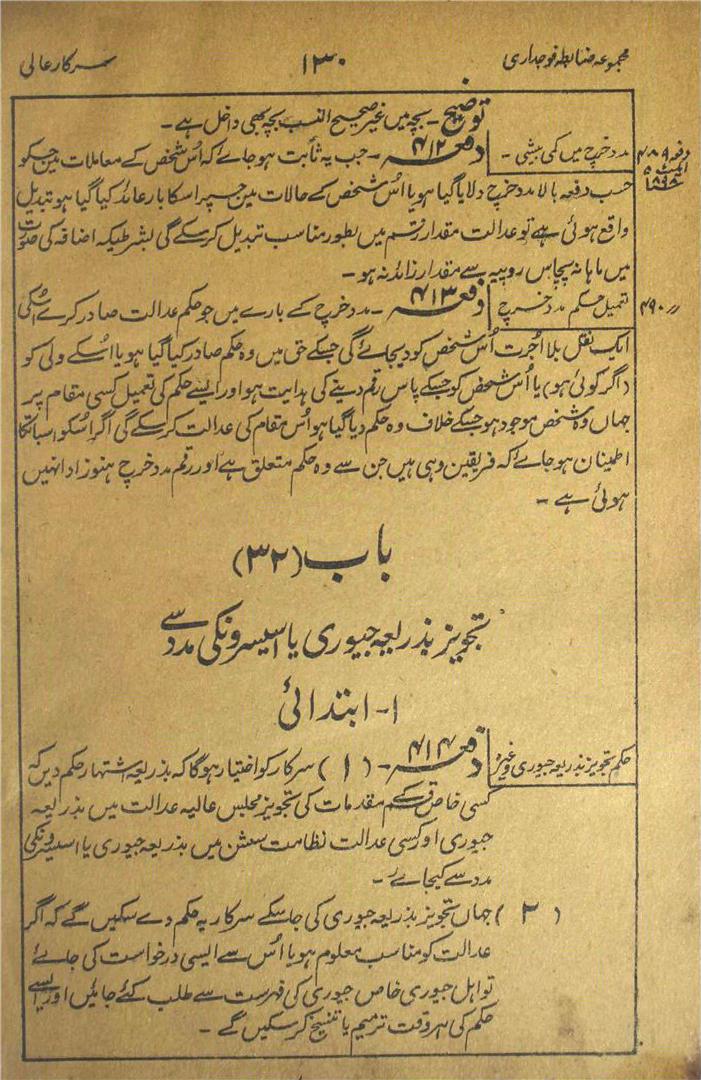 مجموعہ ضابطہ فوجداری ۱۳۰ سرکار عالی
توضیح۔ بچہ میں غیر صحیح النسب بچہ بھی داخل ہے۔
دفعہ ۴۸۹ ایکٹ ۵ ۱۸۹۸ء
مدد خرچ میں کمی بیشی۔
دفعہ ۴۱۲۔ جب یہ ثابت ہو جائے کہ اُس شخص کے معاملات میں جسکو
حسب دفعہ بالا مدد خرچ دلایا گیا ہو یا اُس شخص کے حالات میں جسپر اسکا بار عائد کیا گیا ہو تبدیل
واقع ہوئی ہے تو عدالت مقدار رقم میں بطور مناسب تبدیل کر سکے گی بشرطیکہ اضافہ کی صورت
میں ماہانہ پچاس روپیہ سے مقدار زائد نہ ہو۔
〃 ۴۹۰
تعمیل حکم مدد خرچ
دفعہ ۴۱۳۔ مدد خرچ کے بارے میں جو حکم عدالت صادر کرے اُسکی
ایک نقل بلا اُجرت اُس شخص کو دیجائے گی جسکے حق میں وہ حکم صادر کیا گیا ہو یا اُسکے ولی کو
(اگر کوئی ہو) یا اُس شخص کو جسکے پاس رقم دینے کی ہدایت ہو اور ایسے حکم کی تعمیل کسی مقام پر
جہاں وہ شخص موجود ہو جسکے خلاف وہ حکم دیا گیا ہو اُس مقام کی عدالت کر سکے گی اگر اُسکو اسبات کا
اطمینان ہو جائے کہ فریقین وہی ہیں جن سے وہ حکم متعلق ہے اور رقم مدد خرچ ہنوز ادا نہیں
ہوئی ہے۔
باب (۳۲)
تجویز بذریعہ جیوری یا اسیسرونکی مدد سے
۱۔ ابتدائی
حکم تجویز بذریعہ جیوری وغیرہ
دفعہ ۴۱۴۔ (۱) سرکار کو اختیار ہوگا کہ بذریعہ اشتہار حکم دیں کہ
کسی خاص قسم مقدمات کی تجویز مجلس عالیہ عدالت میں بذریعہ
جیوری اور کسی عدالت نظامت سشن میں بذریعہ جیوری یا اسیسرونکی
مدد سے کیجائے۔
(۲) جہاں تجویز بذریعہ جیوری کی جا سکے سرکار یہ حکم دے سکیں گے کہ اگر
عدالت کو مناسب معلوم ہو یا اُس سے ایسی درخواست کی جائے
تو اہل جیوری خاص جیوری کی فہرست سے طلب کئے جائیں اور ایسے
حکم کی ہر وقت ترمیم یا تنسیخ کر سکیں گے۔